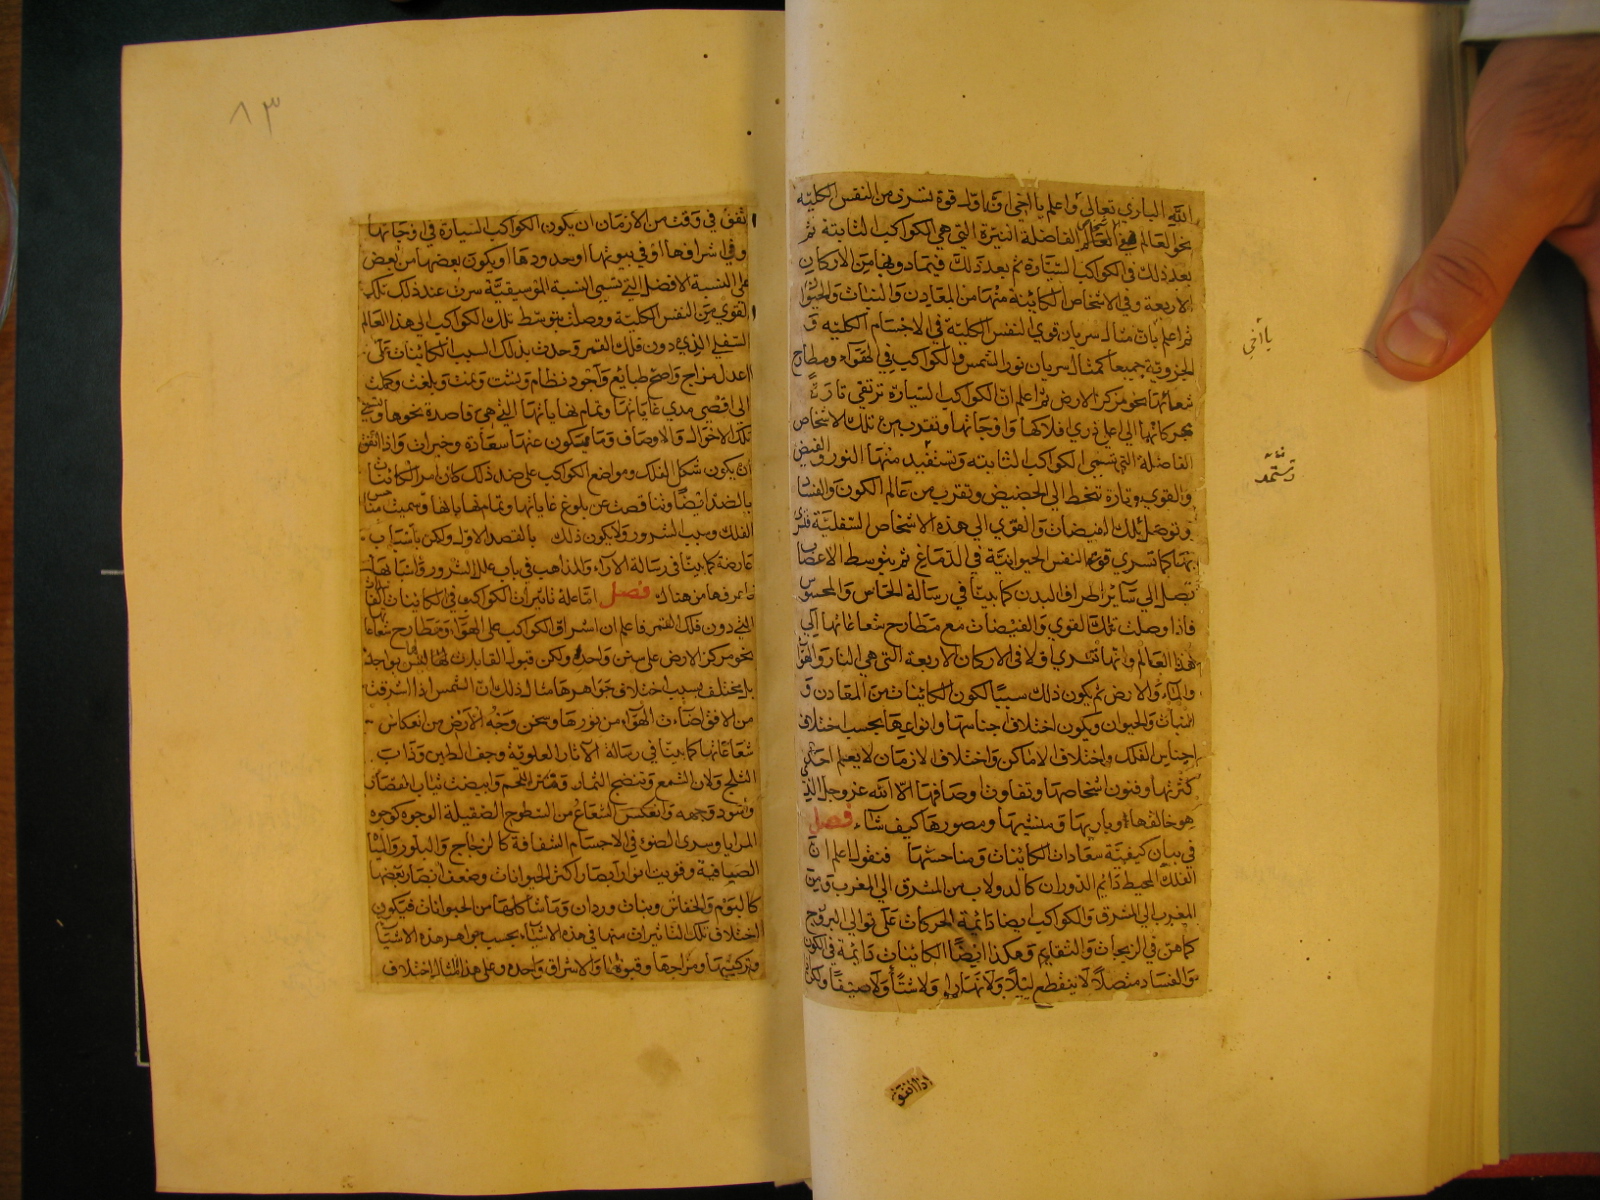 الله الباري تعالي واعلم يا اخي ان اول قوة تسري من النفس الكلية
نحو العالم في الفاضلة النيرة التي هي الكواكب الثابتة ثم
بعد ذلك في الكواكب السيارة ثم بعد ذلك فيما دونها من الاركان
الاربعة وفي الاشخاص الكائنة منها من المعادن والنبات والحيوا
ثم اعلم بان مثال سريان قوي النفس الكلية في الاجسام الكلية و
الجزوية جميعا كمثال سريان نور الشمس والكواكب في الهواء ومطارح
شعاعاتها نحو مركز الارض ثم اعلم ان الكواكب السيارة ترتقي تارة
بحركاتها الي اعلي ذري افلاكها واوجاتها وتقرب من تلك الاشخاص
الفاضلة التي تسمي الكواكب الثابته وتستفيد منها النور والفيض
والقوي وتارة تنحط الي الحضيض وتقرب من عالم الكون والفساد
وتوصل تلك الفيضات والقوي الي هذه الاشخاص السفلية
بها كما تسري قوة النفس الحيوانية في الدماغ ثم بتوسط الاعصاب
تصل الي سائر اطراف البدن كما بينا في رسالة الحاس والمحسوس
فاذا وصلت تلك القوي والفيضات مع مطارح شعاعاتها الي
هذا العالم وانها تسري اولا في الاركان الاربعة التي هي النار والهواء
والماء والارض ثم يكون ذلك سببا لكون الكائنات من المعادن و
النبات والحيوان ويكون اختلاف اجناسها وانواعها بحسب اختلاف
الفلك واختلاف الاماكن واختلاف الازمان لا يعلم احد
كثرتها وفنون اشخاصها وتفاوت وصافها الا الله عز وجل الذي
هو خالقها وباريها ومنشيها ومصورها كيف شاء فصل
في بيان كيفية سعادات الكائنات ومناحسها فنقول اعلم ان
الفلك المحيط دائم الدوران كالدولاب من المشرق الي المغرب ومن
المغرب الي المشرق والكواكب ايضا دائمة الحركات علي توالي البروج
كما هن في الزيجات والتقاويم وهكذا ايضا الكائنات دائمة في الكون
والفساد متصلا لا ينقطع ليلا ولا نهارا ولا شتاء ولا صيفا ولكن
اذا اتفق
يا اخي
تستمد
٨٣
تتفق في وقت من الازمان ان يكون الكواكب السيارة في اوجاتها
وفي اشرافها او في بيوتها او حدودها او يكون بعضها من بعض
علي النسبة الافضل التي تسمي النسبة الموسيقية سرت عند ذلك تلك
القوي من النفس الكلية ووصلت بتوسط تلك الكواكب الي هذا العالم
السفلي الذي دون فلك القمر وحدث بذلك السبب الكائنات علي
اعدل مزاج واصح طبايع واجود نظام ونشت ونمت وبلغت وكملت
الي اقصي مدي غاياتها وتمام نهاياتها التي هي قاصدة نحوها وتسمي
تلك الاحوال والاوصاف وما يتكون عنها سعادة وخيرات واذا اتفق
ان يكون شكل الفلك ومواضع الكواكب علي ضد ذلك كان امر الكائنات
بالضد ايضا وتناقصت عن بلوغ غاياتها وتمام نهاياتها وسميت مناحس
الفلك وسبب الشرور ولا يكون ذلك بالقصد الاول ولكن باسباب
عارضة كما بينا في رسالة الآراء والمذاهب في باب علل الشرور واسبابها
فاعرفها من هناك فصل اما علة تاثيرات الكواكب في الكائنات
التي دون فلك القمر فاعلم ان اشراق الكواكب علي الهواء ومطارح شعاعاتها
نحو مركز الارض علي سنن واحد ولكن قبول القابلات لها ليس بواحد
بل يختلف بسبب اختلاف جواهرها مثال ذلك ان الشمس اذا اشرقت
من الافق اضاءت الهواء من نورها وسخن وجه الارض من انعكاس
شعاعاتها كما بينا في رسالة الآثار العلوية وجف الطين وذاب
الثلج ولان الشمع ونضج الثمار ونتن اللحم وابيضت ثياب القصار
واسود وجهه وانعكس الشعاع من السطوح الصقيلة الوجوه كوجوه
المرايا وسري الضوء في الاجسام الشفافة كالزجاج والبلور والمياه
الصافية وقويت انوار ابصار اكثر الحيوانات وضعف ابصار بعضها
كالبوم والخفاش وبنات وردان وما شاكلها من الحيوانات فيكون
اختلاف تلك التاثيرات منها في هذه الاشياء بحسب جواهر هذه الاشياء
وتركيبها ومزاجها وقبولها والاشراق واحد وعلي هذا المثال اختلاف